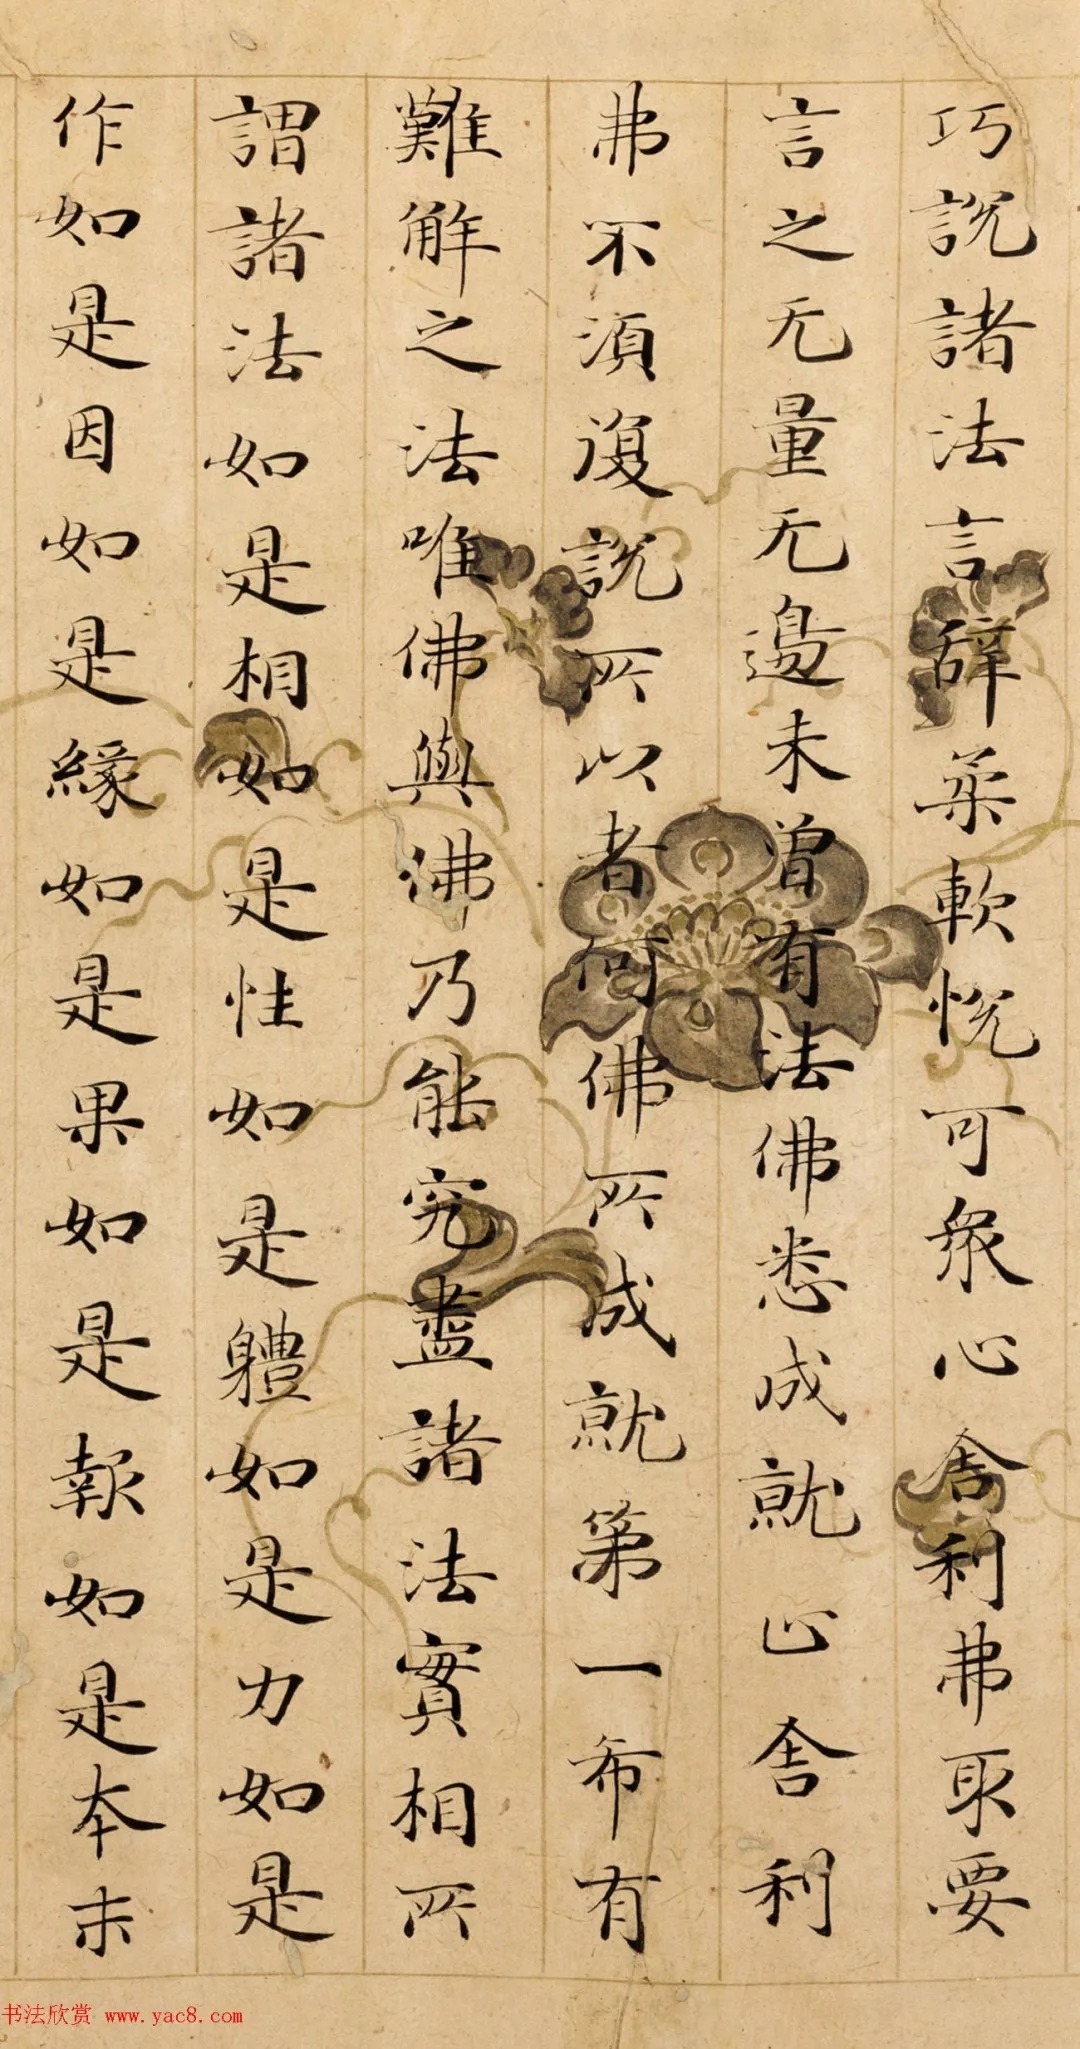 巧說諸法言辭柔軟悅可衆心舍利弗取要
言之无量无邊未曾有法佛悉成就止舍利
弗不須復說所以者何佛所成就第一希有
難解之法唯佛與佛乃能究盡諸法實相所
謂諸法如是相如是性如是體如是力如是
作如是因如是緣如是果如是報如是本末
书法欣赏 www.yac8.com